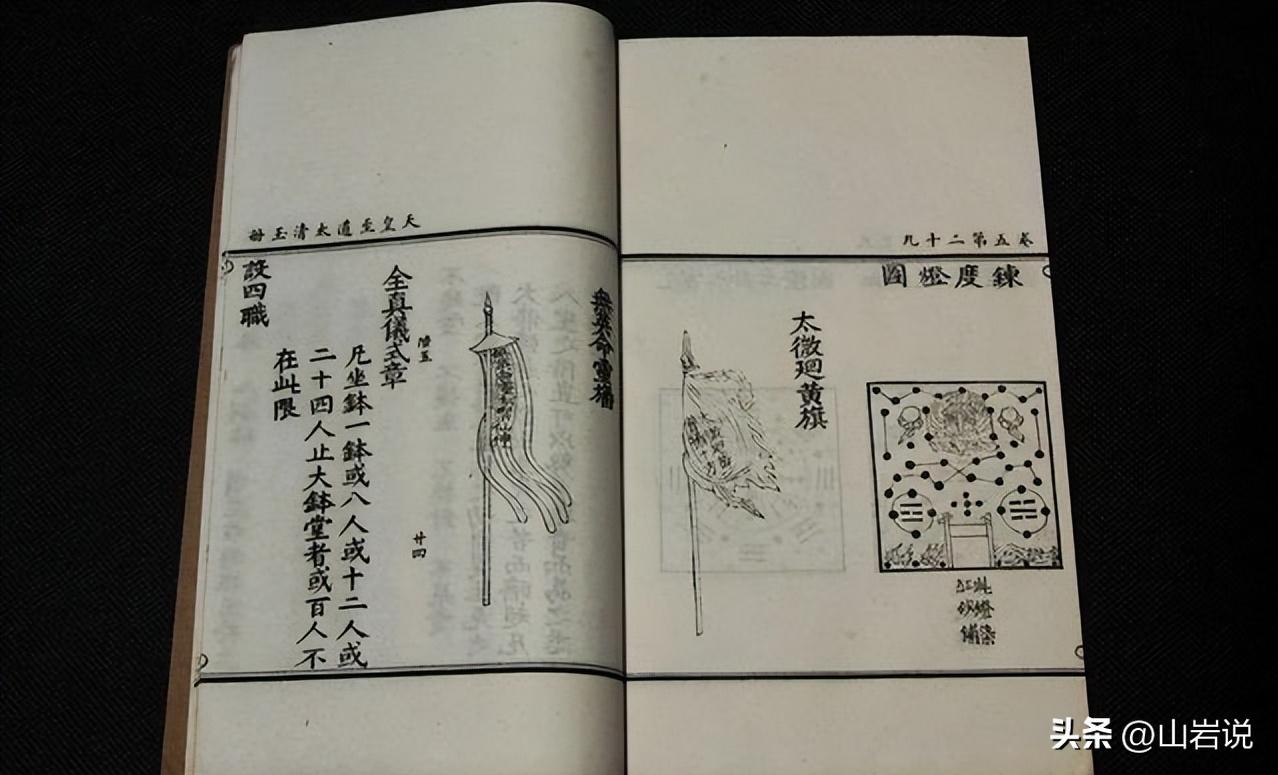 卷五第二十九
鍊度燈圖
太微廻黃旗
天皇至道太清玉冊
無英命靈旛
全真儀式章
凡坐鉢一鉢或八人或十二人或
二十四人止大鉢堂者或百人不
在此限
設四職
廿四
头条 @山岩说